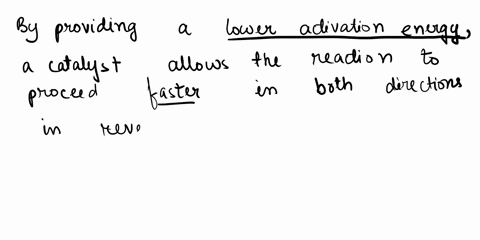 By providing a lower activation energy,
a catalyst allows the reaction to
proceed faster in both directions
in reve